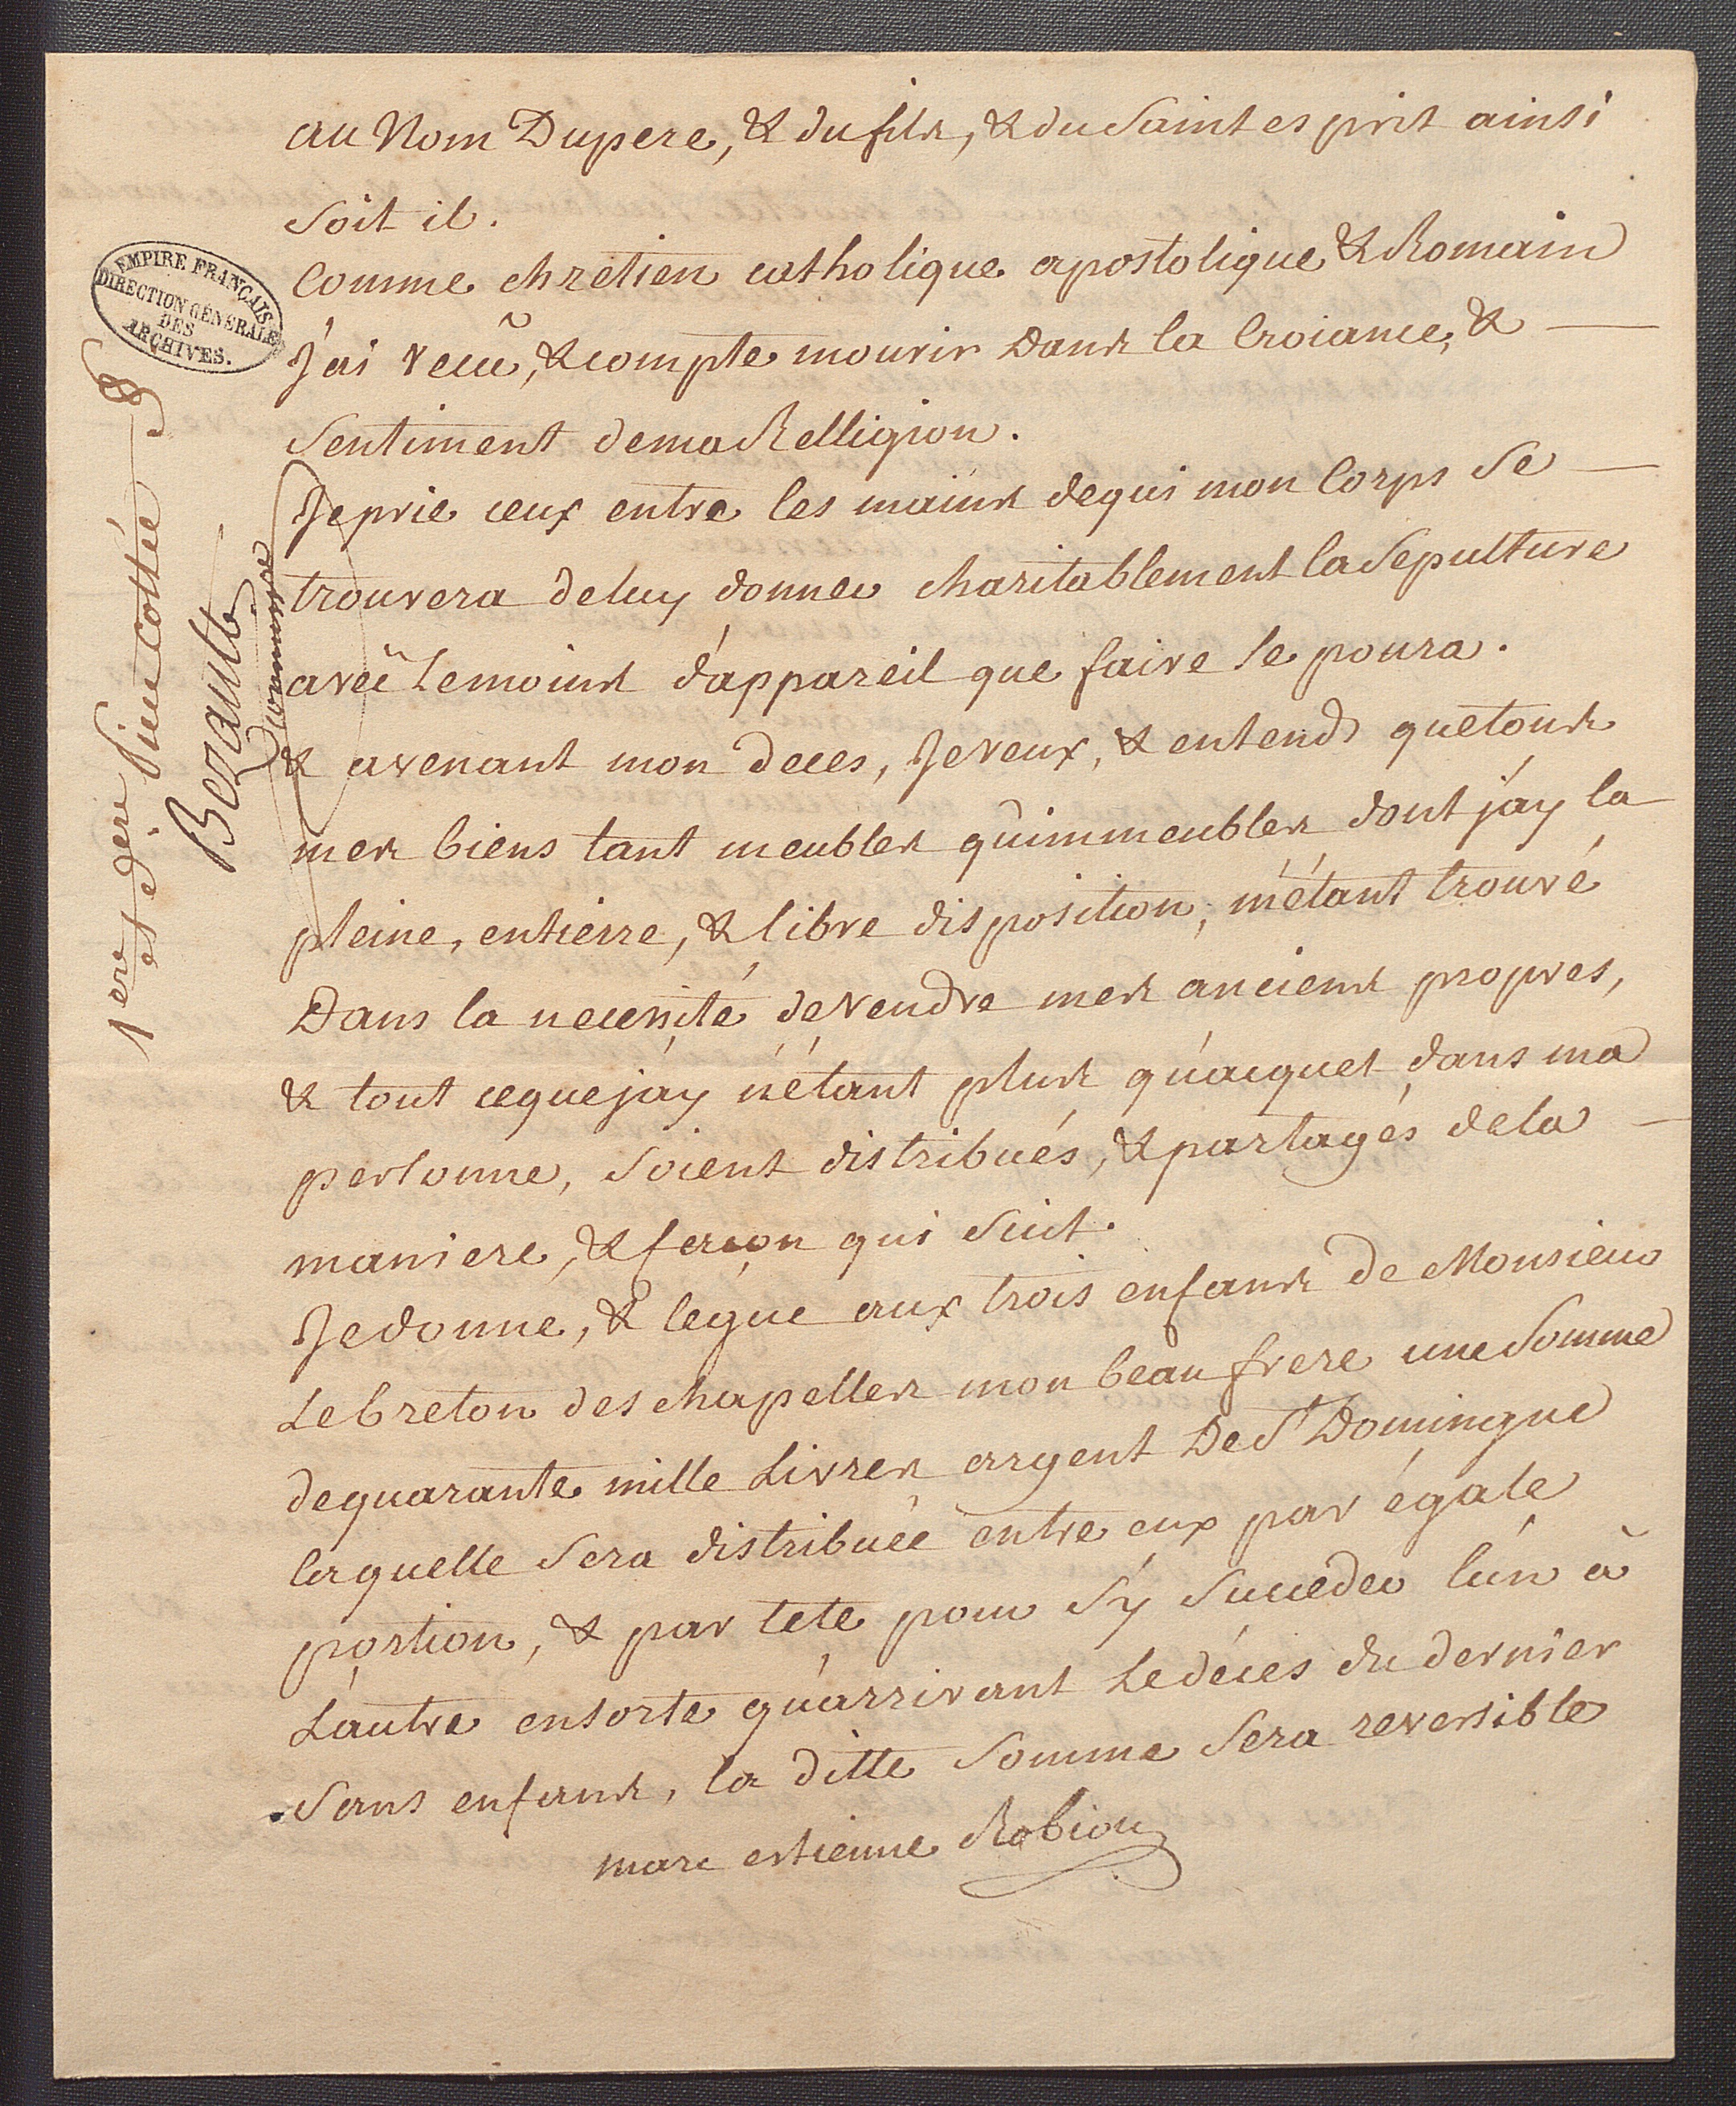 au Nom Dupere, & du fils, & du Saint esprit ainsi
Soit il.
Comme chretien catholique apostolique & Romain
J'ai vecu, & compte mourir Dans la Croiance, &
Sentiment dema Relligion.
Jeprie ceux entre les mains dequi mon Corps Se
trouvera deluy donner charitablement la Sepulture
avec Lemoins d'appareil que faire Se poura.
& avenant mon deces, Jeveux, & entends quetous
mes biens tant meubles qu'immeubles dont j'ay la
pleine, entierre, & libre disposition, m'étant trouvé
Dans la necessité deVendre mes anciens propres,
& tout ceque j'ay n'étant plus qu'acquet dans ma
personne, Soient distribués, & partagés dela
maniere, & facon qui Suit.
Jedonne, & legue aux trois enfans de Monsieur
Lebreton deschapelles mon beau frere une Somme
dequarante mille Livres argent De St Domingue
laquelle Sera distribuée entre eux par égale
portion, & par tete pour S'y Succeder l'un à
L'autre ensorte qu'arrivant Ledéces du dernier
Sans enfans, la ditte Somme Sera reversible
marc estienne Robiou
EMPIRE FRANÇAIS
DIRECTION GÉNÉRALE
DES
ARCHIVES.
1ere et dere Piece cottée
Bezault